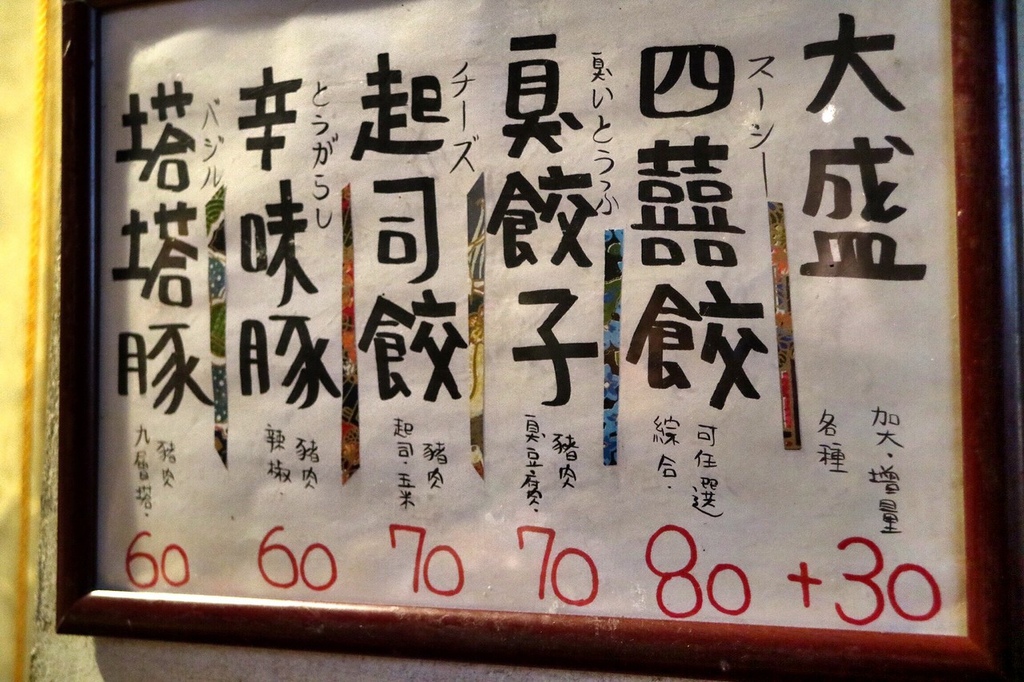 大盛
各種
加大・增量
+30
四囍餃
スーシー
綜合・
可任選
80
臭餃子
臭いとうふ
豬肉
臭豆腐・
70
起司餃
チーズ
豬肉
起司・玉米
70
辛味豚
とうがらし
豬肉
辣椒・
60
塔塔豚
バジル
豬肉
九層塔・
60